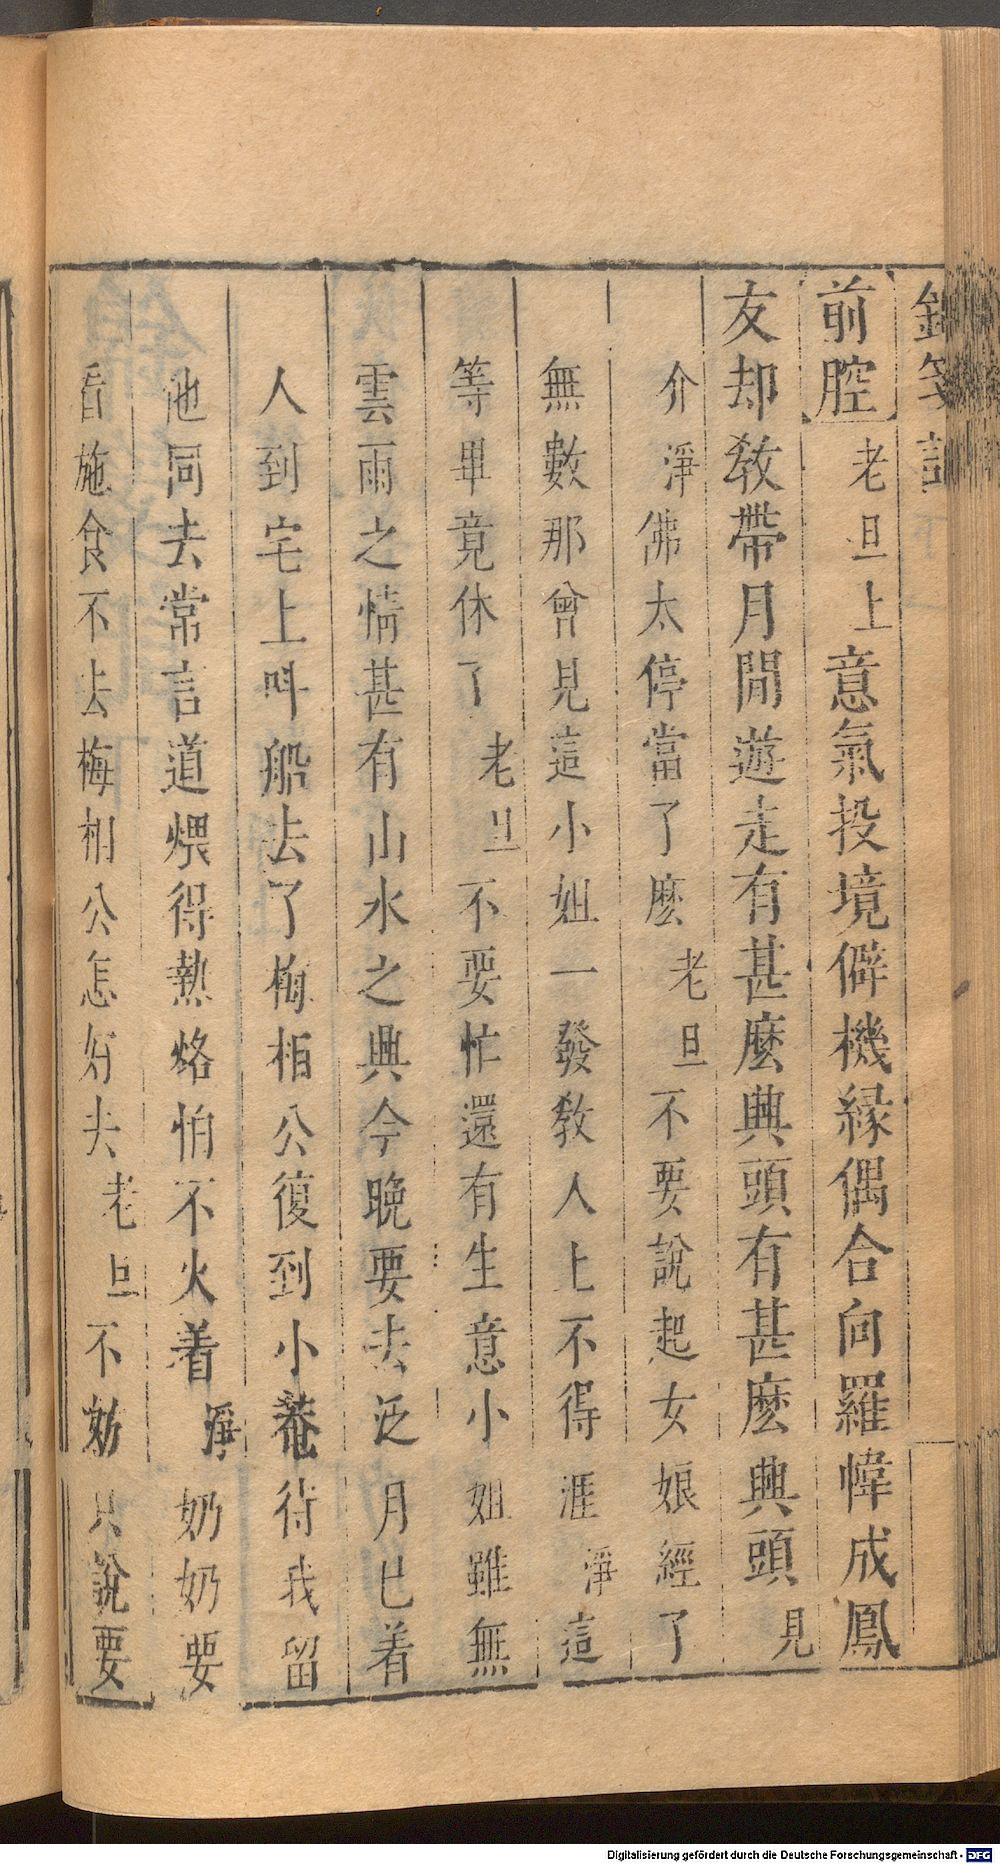 箋記
前腔老旦上意氣投境僻機緣偶合向羅幃成鳳
友却敎帶月閒遊走有甚麽興頭有甚麽興頭見
介淨佛太停當了麽老旦不要說起女娘經了
無數那曾見這小姐一發敎人上不得涯淨這
等畢竟休了老旦不要忙還有生意小姐雖無
雲雨之情甚有山水之興今晚要去泛月已着
人到宅上呌船去了梅相公復到小菴待我留
他同去常言道煨得熱烙怕不火着淨奶奶要
看施食不去梅相公怎好去老旦不妨只說要
Digitalisierung gefördert durch die Deutsche Forschungsgemeinschaft - DFG